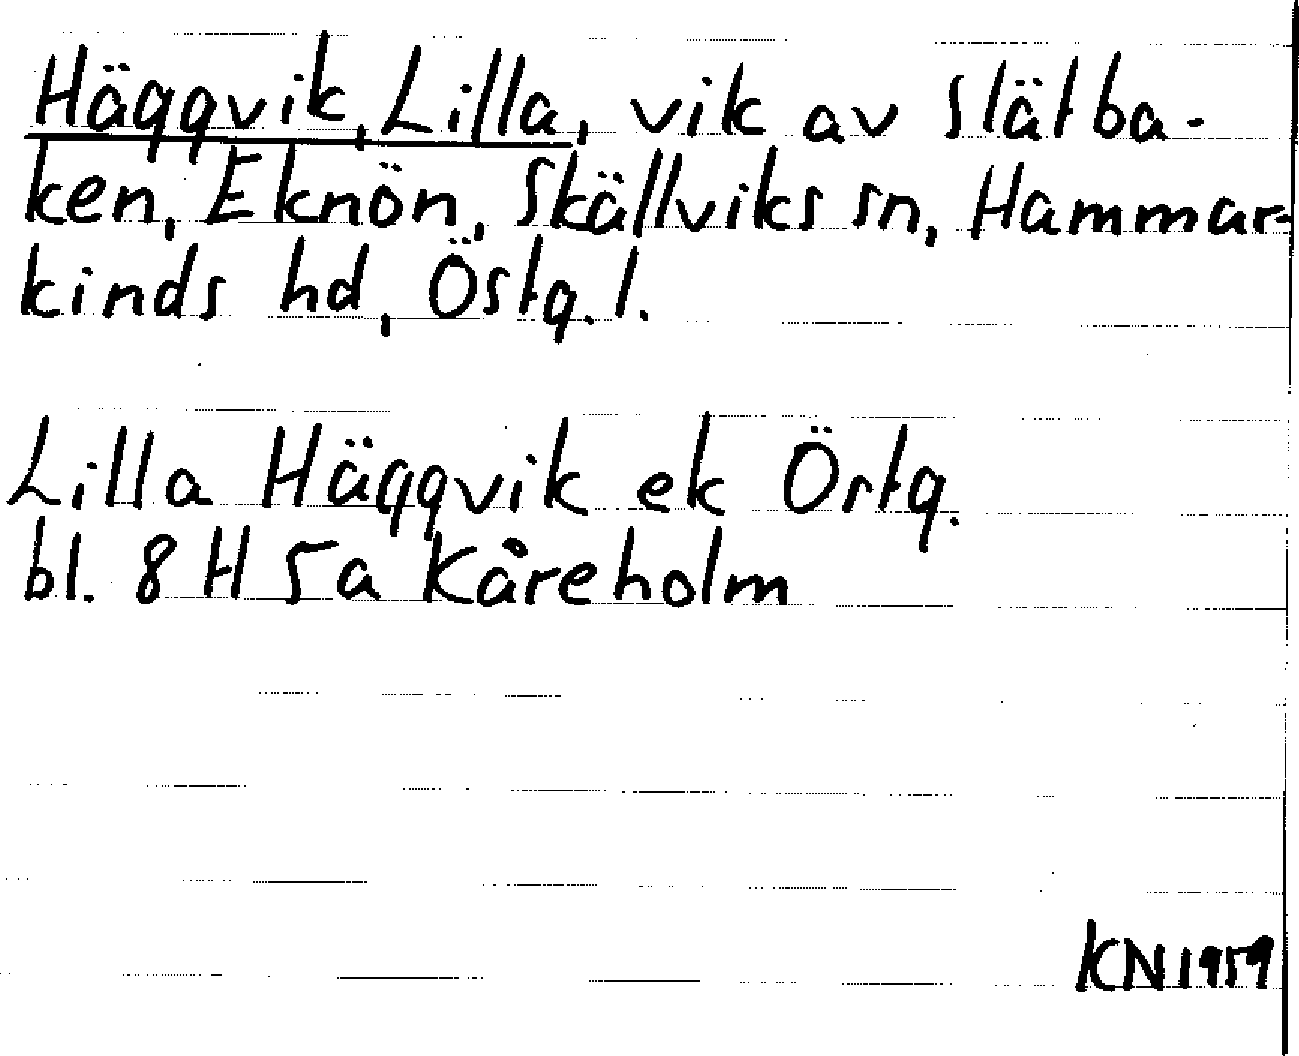 Häggvik, Lilla, vik av Slätba-
ken, Eknön, Skällviks sn, Hammar-
kinds hd, Östg. l.
Lilla Häggvik ek Östg.
bl. 8 H 5a Kåreholm
KN1959